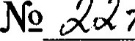 № 227